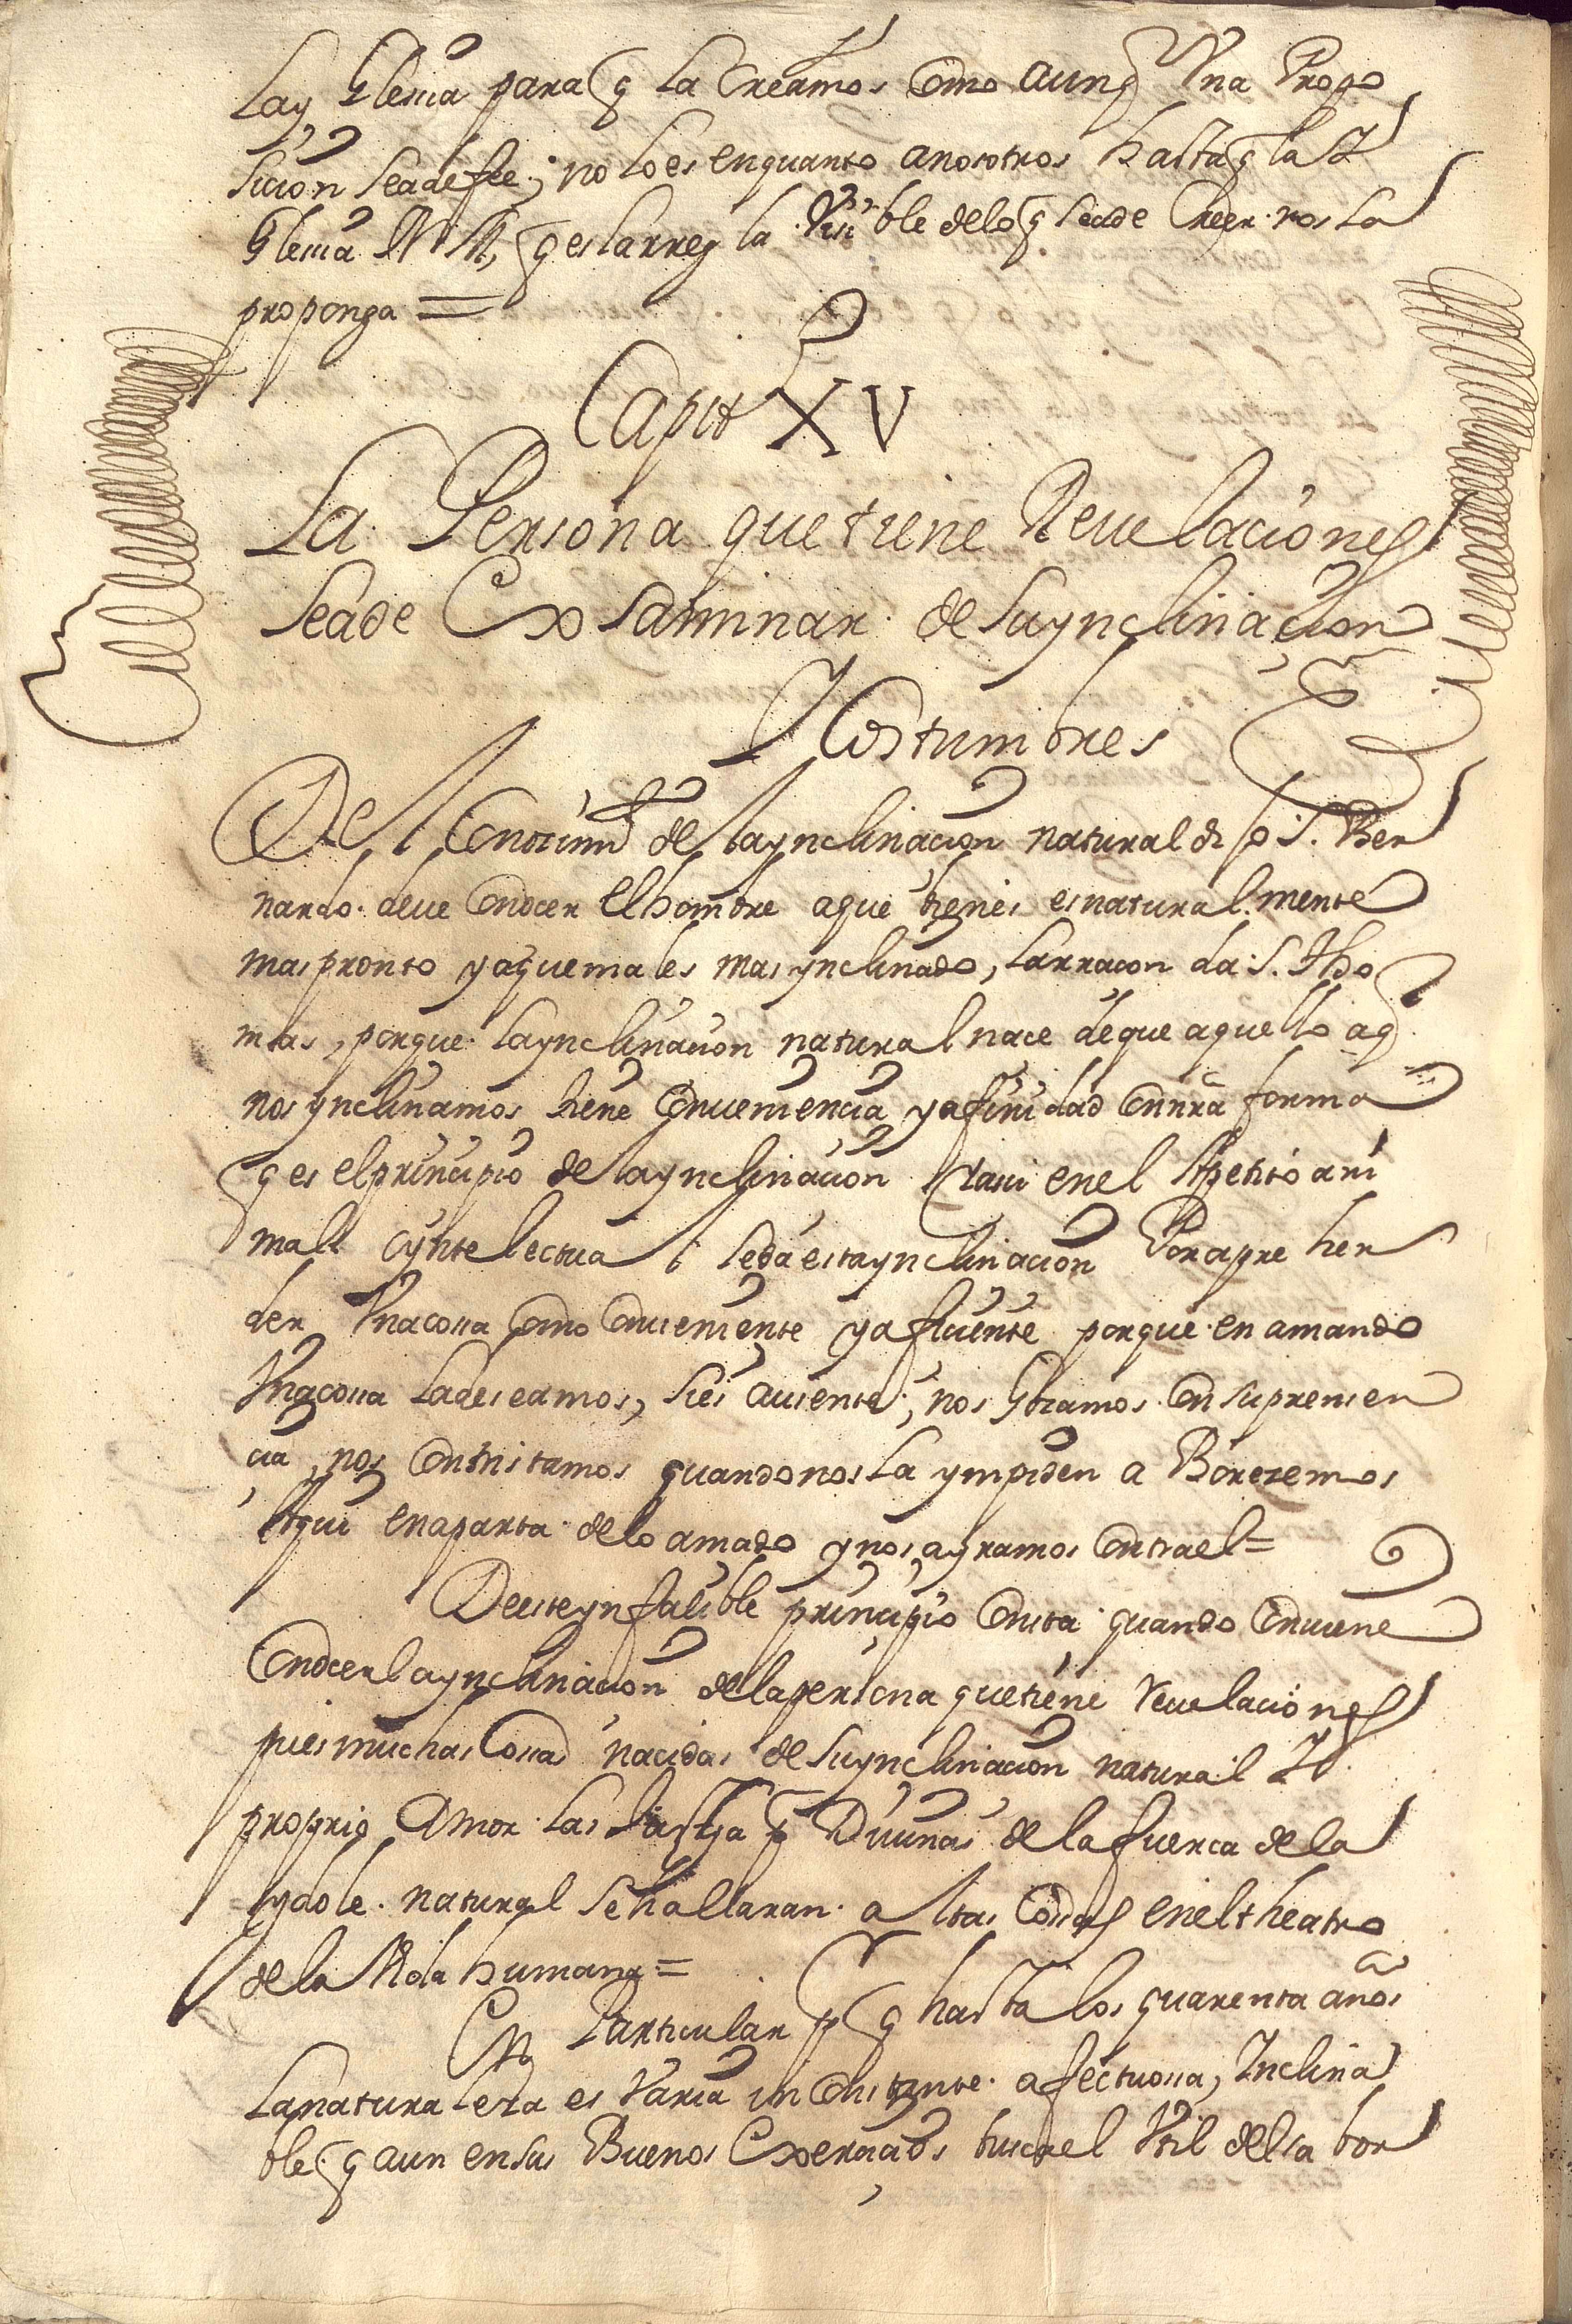 Lay Glesia para q̃ la Creamos Como aunq̃ Vna Propo
sicion Seadefee; no lo es enquanto anosotros hasta q̃ la Y
Glesia N M, q̃ es larregla Visible delo q̃ seade Creer nos la
proponga =
Capit XV
La Persona que tiene Reuelaciones
Seade Exsaminar de Suynclinacion
Y Costumbres
Del Conocim.to de laynclinacion natural dijo S. Ber
nardo. deue Conocer El hombre aque bienes esnaturalmente
maspronto yaquemales masynclinado, Larracon da S. Tho
mas, porque laynclinacion natural nace deque aquello aq̃
nos ynclinamos tiene Conueniencia yafinidad Con nrã forma
q̃ es elprincipio de laynclinacion Yasi enel Apetito ani
mal oyntelectual sedaestaynclinacion Poraprehen
der Vnacossa Como Conueniente yafluente porque en amando
Vnacossa ladeseamos, sies aussente; nos Goçamos Con supressen
cia, nos Contristamos quandonosla ympiden a Borezemos
Aqui enaparta delo amado ynosayramos Contrael =
Deesteynfalible principio Consta quando Conuiene
Conocerlaynclinacion delapersona quetiene Reuelaciones
puesmuchas Cossas nacidas de Suynclinacion natural Y
proprio Amor las Diuinas de la fuerca dela
yndole natural Sehallaran altas Cossas eneltheatro
de la Vida humana =
En Particular q̃ hasta los quarenta años
lanaturaleza es Varia inConstante afectuossa, Inclina
ble q̃ aun ensus Buenos Exercicios buscael Vtil delsabor